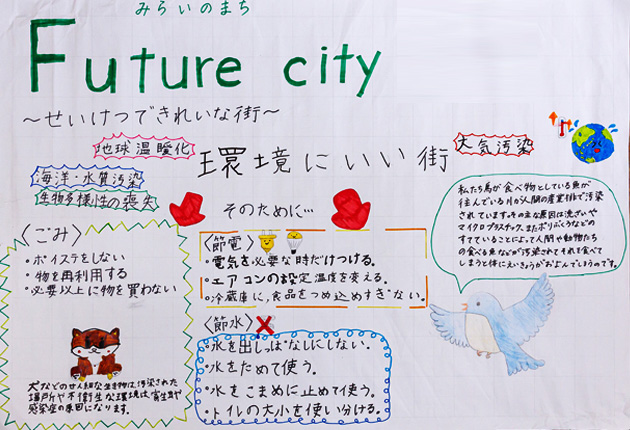 みらいのまち
Future city
～せいけつできれいな街～
地球温暖化
環境にいい街
大気汚染
海洋・水質汚染
生物多様性の喪失
そのために…
〈ごみ〉
・ポイステをしない
・物を再利用する
・必要以上に物を買わない
犬などのせん細な生き物は、汚染された
場所や不衛生な環境は、寄生虫や
感染症の原因になります。
〈節電〉
・電気を必要な時だけつける。
・エアコンの設定温度を変える。
・冷蔵庫に、食品をつめ込めすぎない。
〈節水〉
・水を出しっぱなしにしない。
・水をためて使う。
・水をこまめに止めて使う。
・トイレの大小を使い分ける。
私たち鳥が食べ物としている魚が
住んでいる川が人間の産業排で汚染
されています。その主な原因は洗ざいや
マイクロプラスチック、またポリぶくろなどの
すてていることによって人間や動物たち
の食べる魚などが汚染されてそれを食べて
しまうと体にえいきょうがおよんでしまうのです。